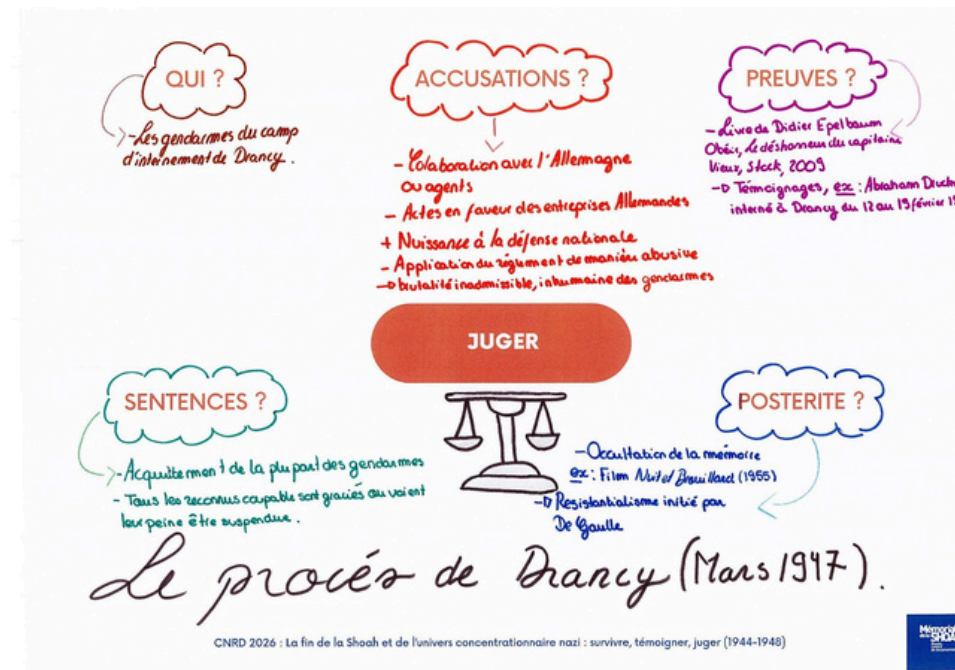 QUI ?
-Les gendarmes du camp
d'internement de Drancy.
ACCUSATIONS ?
- Colaboration avec l'Allemagne
ou agents
- Actes en faveur des entreprises Allemandes
+ Nuissance à la défense nationale
- Application du règlument de manièru abusive
-> brutalité inadmissible, inhumaine des gendarmes
PREUVES ?
- Livre de Didier Epelbaum
Obéir, Le déshonneur du capitaine
Vieux, Stock, 2009
-> Témoignages, ex : Abraham Druck
interné à Drancy du 12 au 19 février 19
JUGER
SENTENCES ?
-Acquittement de la plupart des gendarmes
- Tous les reconnus coupable sont graciés ou voient
leur peine être suspendue.
POSTERITE ?
-Occultation de la mémoire
ex : Film Nuit et Brouillard (1955)
-> Resistantialisme initié par
De Gaulle
Le procès de Drancy (Mars 1947).
CNRD 2026 : La fin de la Shoah et de l'univers concentrationnaire nazi : survivre, témoigner, juger (1944-1948)
Mémorial
de la SHOAH